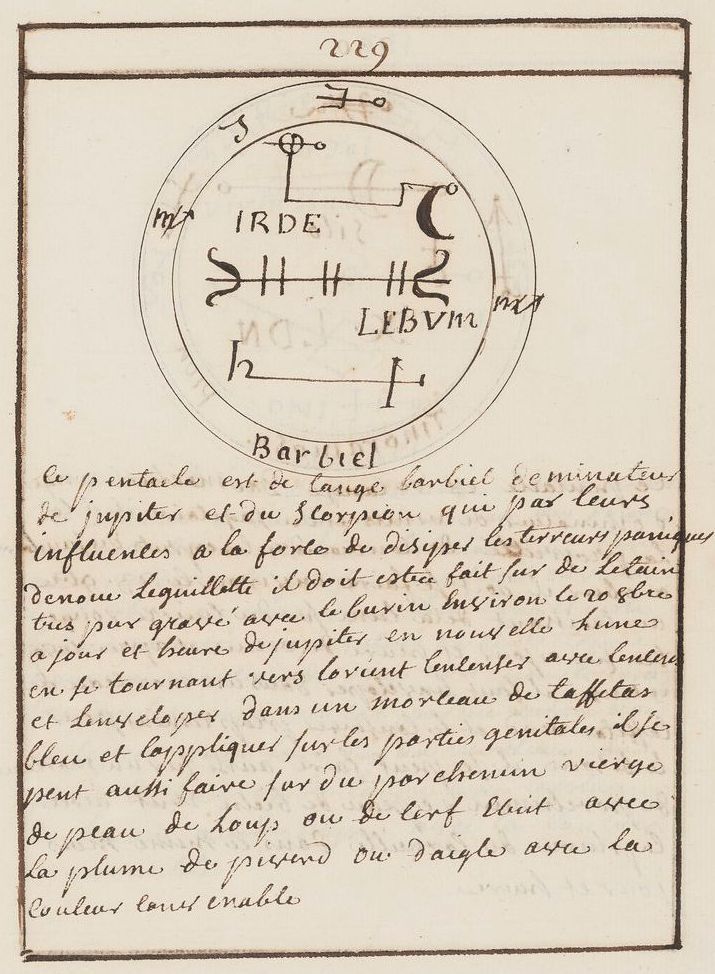 229
IRDE
LEBVM
Barbiel
Ce pentacle est de lange barbiel dominateur
de jupiter et du Scorpion qui par leurs
influences a la force de disiper les terreurs paniques
denoue Leguillette il doit estre fait sur de Letain
tres pur gravé avec le burin Environ le 20 8bre
a jour et heure de jupiter en nouvelle Lune
en se tournant vers lorient lencenser avec lencens
et Lenveloper dans un morceau de taffetas
bleu et lappliquer sur les parties genitales il se
peut aussi faire sur du parchemin vierge
de peau de Loup ou de cerf Ecrit avec
La plume de piverd ou daigle avec la
Couleur convenable